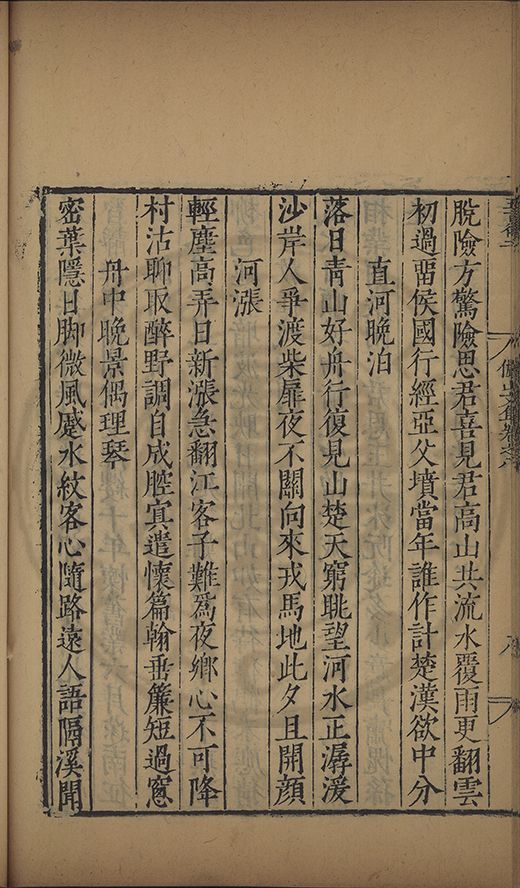 脫險方驚險思君喜見君高山共流水覆雨更翻雲
初過畱侯國行經亞父墳當年誰作計楚漢欲中分
直河晚泊
落日靑山好舟行復見山楚天窮眺望河水正潺湲
沙岸人爭渡柴扉夜不關向來戎馬地此夕且開顏
河漲
輕塵高弄日新漲急翻江客子難爲夜鄉心不可降
村沽聊取醉野調自成腔寘遣懷篇翰垂簾短過窻
舟中晚景偶理琴
密葉隱日脚微風蹙水紋客心隨路遠人語隔溪聞